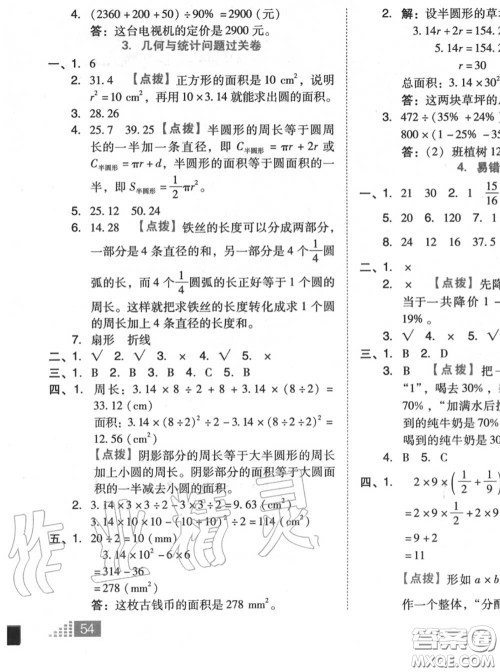 4. (2360+200+50)÷90%=2900(元)
答：这台电视机的定价是2900元。
3. 几何与统计问题过关卷
一、1. 6
2. 31.4 【点拨】正方形的面积是10 cm²，说明
r²=10 cm²，再用10×3.14就能求出圆的面积。
3. 28.26
4. 25.7 39.25 【点拨】半圆形的周长等于圆周
长的一半加一条直径，即C半圆形=πr+2r或
C半圆形=πr+d，半圆形的面积等于圆面积的
一半，即S半圆形=1/2πr²。
5. 25.12 50.24
6. 14.28 【点拨】铁丝的长度可以分成两部分，
一部分是4条直径的和，另一部分是4个1/4圆
弧的长，而4个1/4圆弧的长正好等于1个圆的
周长。这样就把求铁丝的长度转化成求1个圆
的周长加上4条直径的长度和。
7. 扇形 折线
二、1. √ 2. √ 3. × 4. × 5. √
三、1. B 2. B 3. B 4. C 5. B
四、1. 周长：3.14×8÷2+8+3.14×(8÷2)=
33.12(cm)
面积：3.14×(8÷2)²-3.14×(8÷2)²÷2=
12.56(cm²)
【点拨】阴影部分的周长等于大半圆形的周长
加上小圆的周长。阴影部分的面积等于大圆面
积的一半减去小圆的面积。
2. 3.14×3×3÷2-3×3÷2=9.63(cm²)
3.14×10×10-(10×2)²÷2=114(cm²)
五、1. 20÷2=10(mm)
3.14×10²-6²
=314-36
=278(mm²)
答：这枚古钱币的面积是278 mm²。
54
2. 解：设半圆形的草坪
3.14r+2r=
5.14r=
r=30
总面积：3.14×30²
答：这两块草坪的总
3. 472÷(35%+24%)
800×(1-25%-35
答：(2)班植树12
4. 易错
一、1. 21 30 2. 1 15/16
5. 20 6. 120 7. 37
8. 24 12 16 37.5
二、1. ×
2. × 【点拨】先降
当于一共降价1-
19%。
3. √ 4. × 5. ×
三、1. B 2. D
3. B 【点拨】把一
“1”，喝去30%，
70%，“加满水后
到的纯牛奶是70%
喝到的纯牛奶是30%
4. B 5. C
四、1. 2×9×(1/2+1/9)
=2×9×1/2+2×9
=9+2
=11
【点拨】形如a×b
作一个整体，“分配
作业精灵
答案圈
MXQE.COM